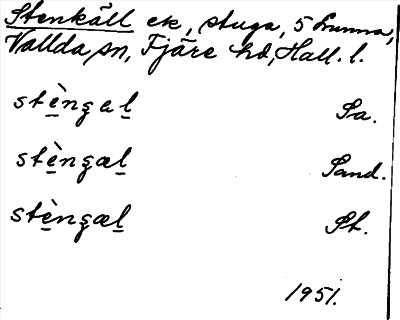 Stenkäll ek, stuga, 5 Lunna,
Vallda sn, Fjäre hd, Hall. l.
stèngal Sa.
stèngæl Sand.
stèngæl St.
1951.